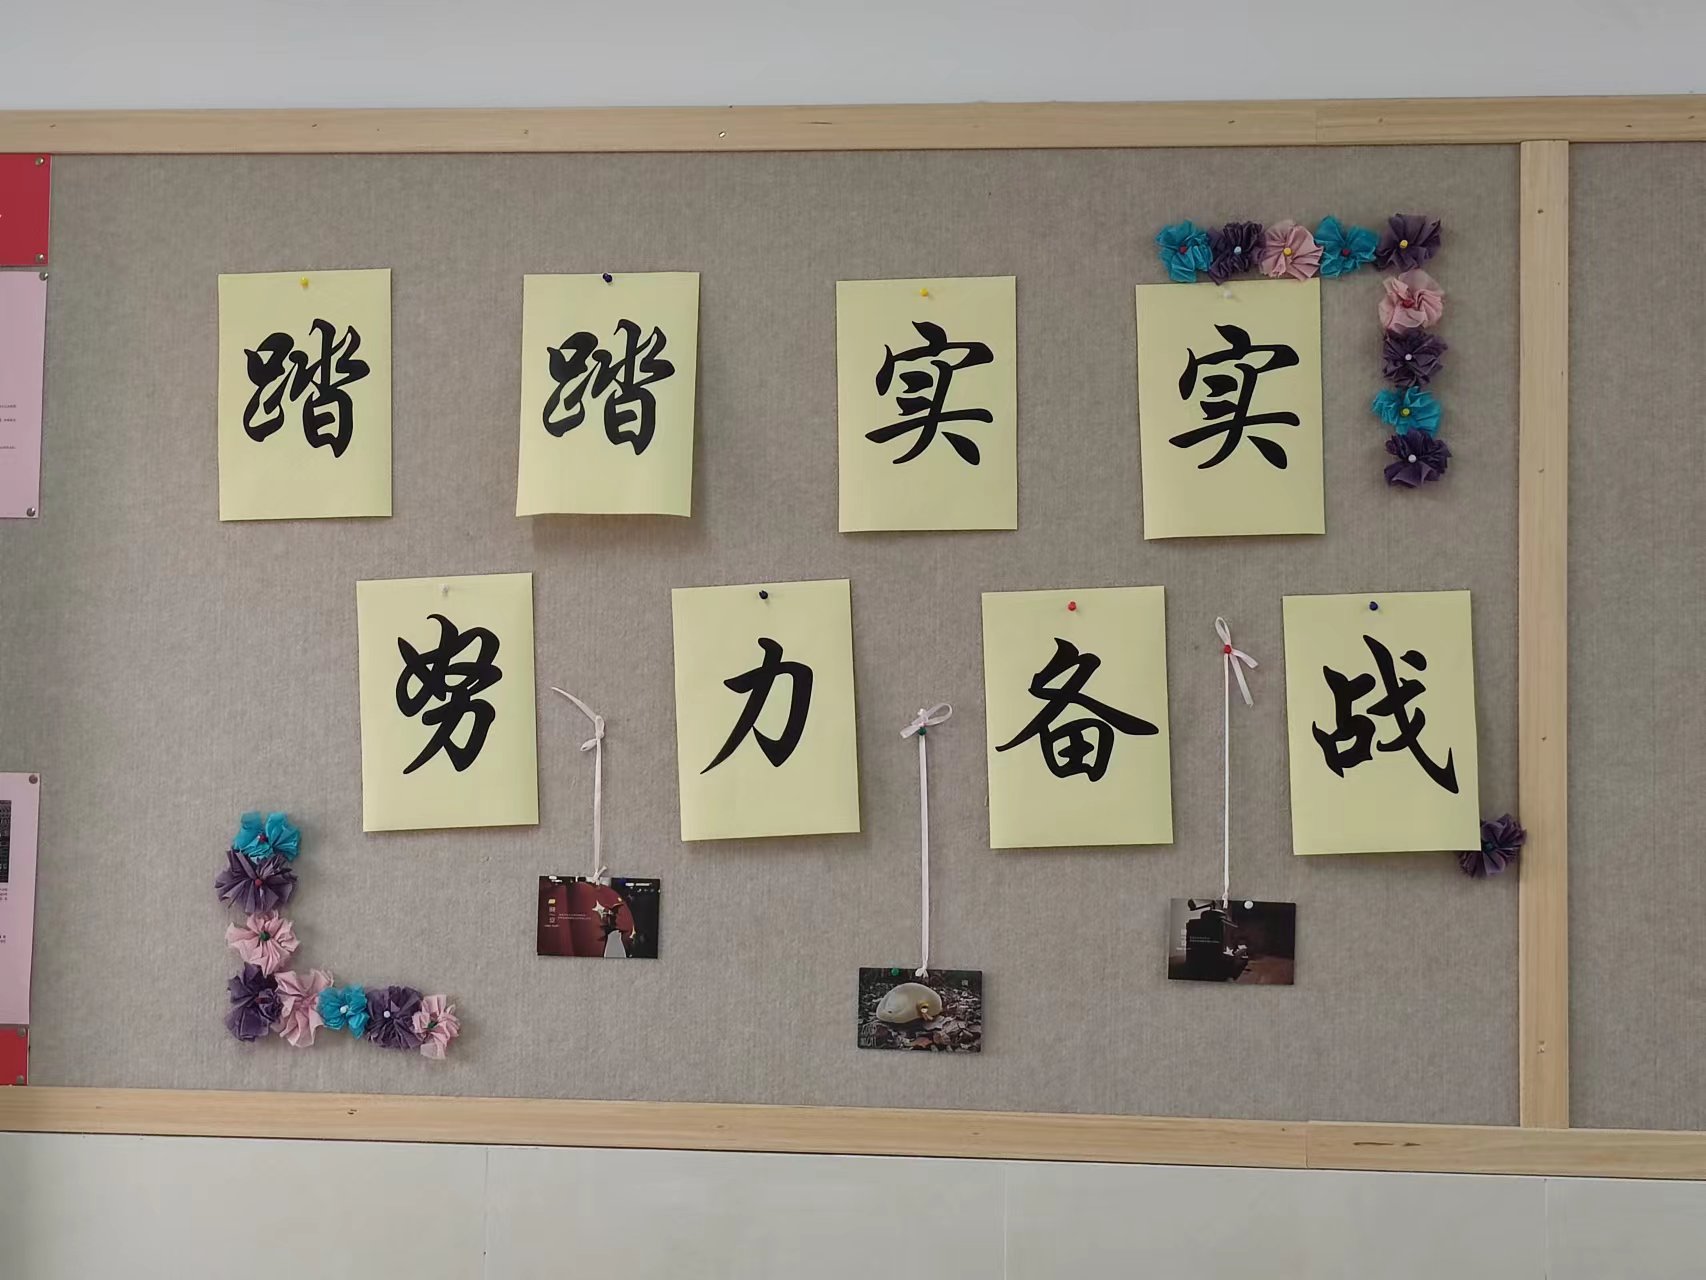 踏踏实实
努力备战